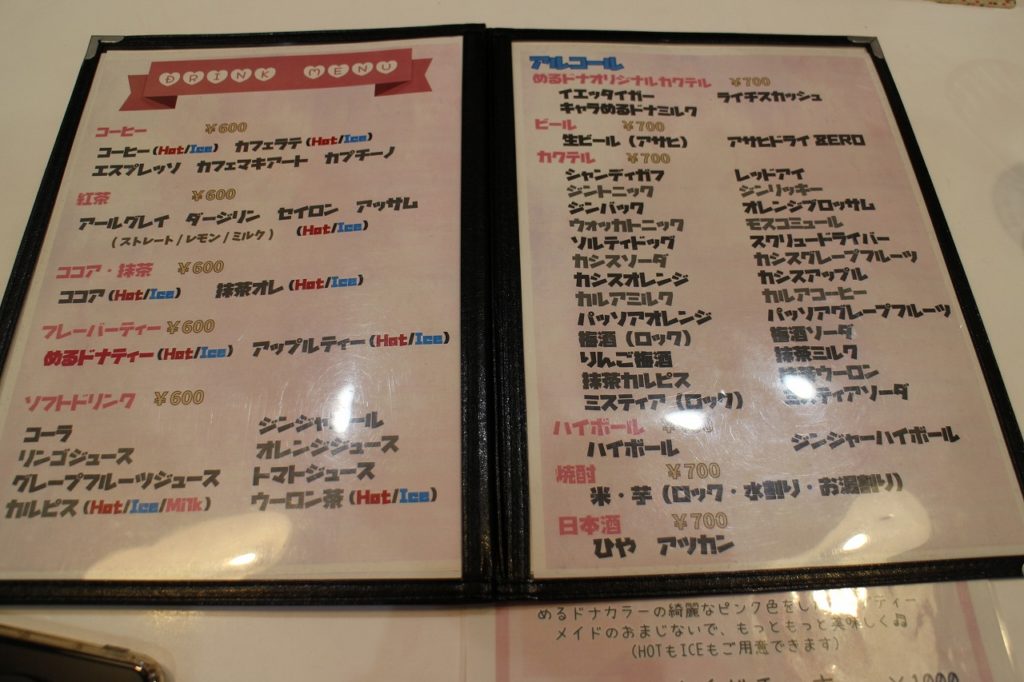 DRINK MENU
コーヒー ¥600
コーヒー(Hot/Ice) カフェラテ(Hot/Ice)
エスプレッソ カフェマキアート カプチーノ
紅茶 ¥600
アールグレイ ダージリン セイロン アッサム
(ストレート/レモン/ミルク) (Hot/Ice)
ココア・抹茶 ¥600
ココア(Hot/Ice) 抹茶オレ(Hot/Ice)
フレーバーティー ¥600
めるドナティー(Hot/Ice) アップルティー(Hot/Ice)
ソフトドリンク ¥600
コーラ ジンジャーエール
リンゴジュース オレンジジュース
グレープフルーツジュース トマトジュース
カルピス(Hot/Ice/Milk) ウーロン茶(Hot/Ice)
アルコール
めるドナオリジナルカクテル ¥700
イエッタイガー ライチスカッシュ
キャラめるドナミルク
ビール ¥700
生ビール(アサヒ) アサヒドライZERO
カクテル ¥700
シャンディガフ レッドアイ
ジントニック ジンリッキー
ジンバック オレンジブロッサム
ウォッカトニック モスコミュール
ソルティドッグ スクリュードライバー
カシスソーダ カシスグレープフルーツ
カシスオレンジ カシスアップル
カルアミルク カルアコーヒー
パッソアオレンジ パッソアグレープフルーツ
梅酒(ロック) 梅酒ソーダ
りんご梅酒 抹茶ミルク
抹茶カルピス 抹茶ウーロン
ミスティア(ロック) ミスティアソーダ
ハイボール
ハイボール ジンジャーハイボール
焼酎 ¥700
米・芋(ロック・水割り・お湯割り)
日本酒 ¥700
ひや アツカン
めるドナカラーの綺麗なピンク色をし
メイドのおまじないで、もっともっと美味しく♫
(HOTもICEもご用意できます)
¥1000